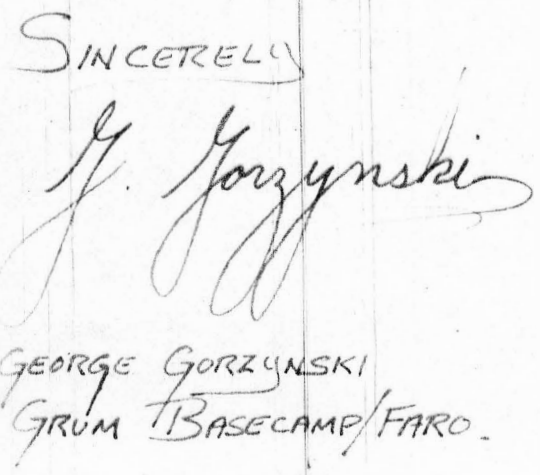 SINCERELY
G. Gorzynski
GEORGE GORZYNSKI
GRUM BASECAMP/FARO.